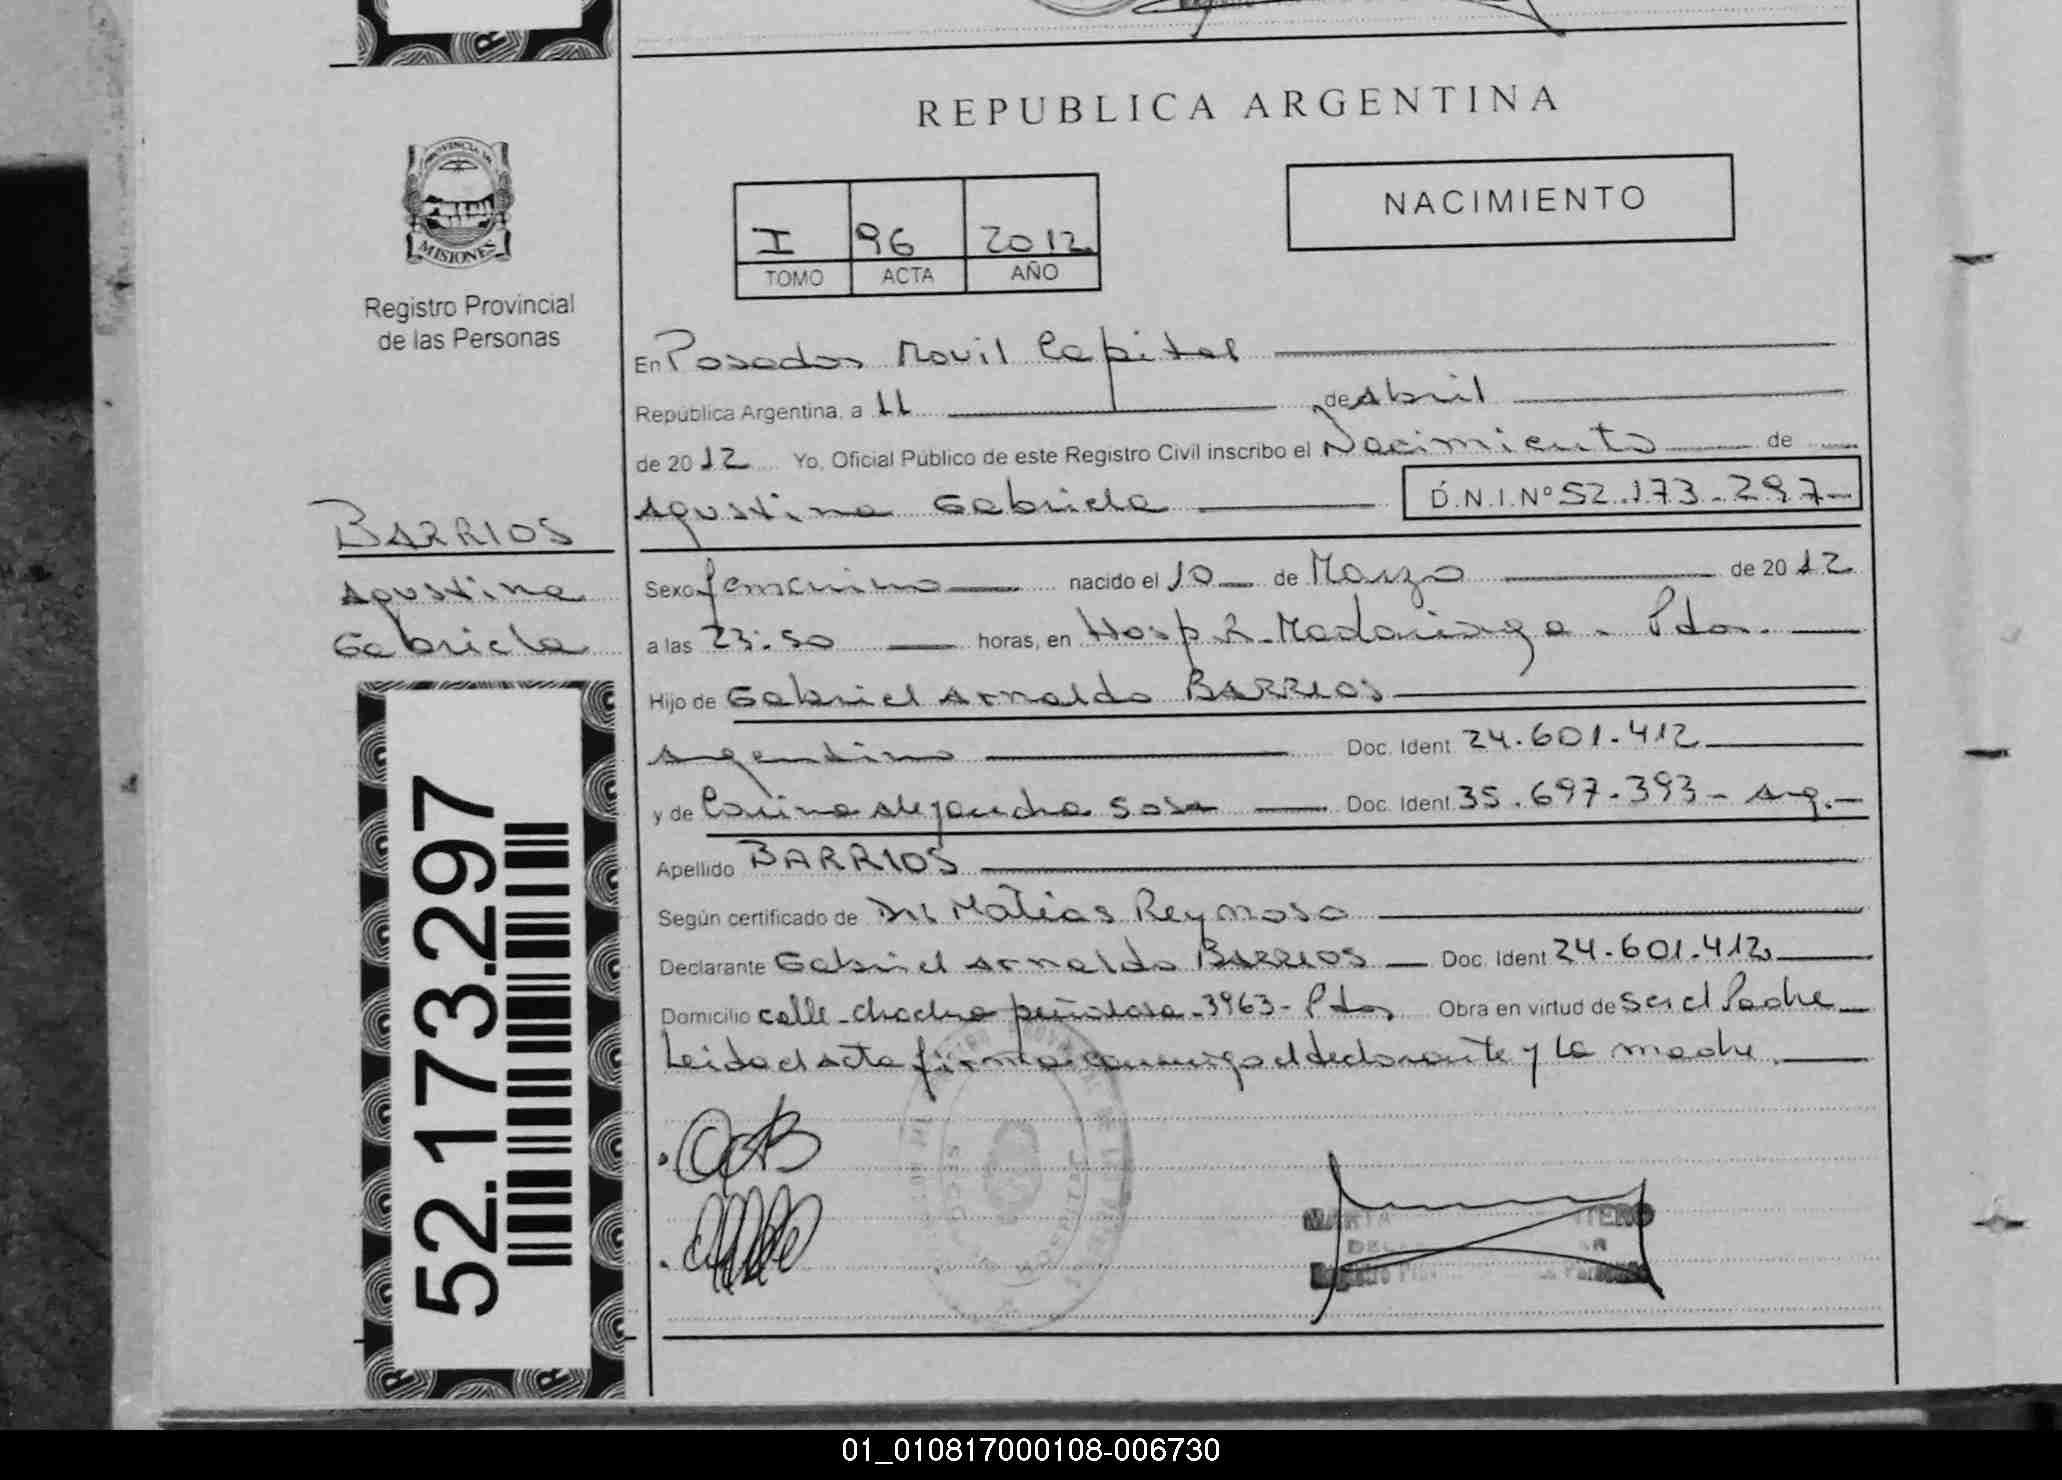 REPUBLICA ARGENTINA
PROVINCIA DE
MISIONES
Registro Provincial
de las Personas
NACIMIENTO
I 96 2012
TOMO ACTA AÑO
En Posadas Movil Capital
República Argentina, a 11 de Abril
de 2012 Yo, Oficial Público de este Registro Civil inscribo el Nacimiento de
Agustina Gabriela D.N.I.Nº 52.173.297
BARRIOS
Agustina
Gabriela
Sexo femenino nacido el 10 de Marzo de 2012
a las 23:50 horas, en Hosp. R. Madariaga - Pdas.
Hijo de Gabriel Arnaldo BARRIOS
Argentino Doc. Ident 24.601.412
y de Corina Alejandra Sosa Doc. Ident. 35.697.393 - Arg.
Apellido BARRIOS
Según certificado de Matias Reynoso
Declarante Gabriel Arnaldo BARRIOS Doc. Ident 24.601.412
Domicilio calle - chacra 3963 - Pdas Obra en virtud de ser el Padre
Leida el acta firma conmigo el declarante y la madre.
52.173.297
MARTA
01_010817000108-006730